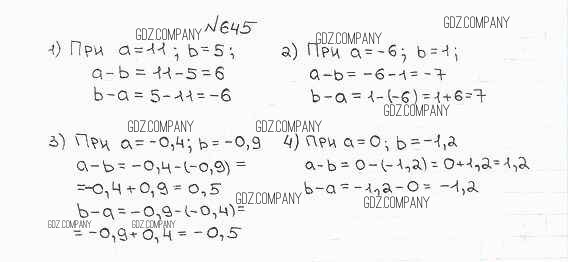 GDZ.COMPANY
№645
GDZ.COMPANY
GDZ.COMPANY
1) При a=11; b=5;
a-b = 11-5=6
b-a = 5-11=-6
2) При a=-6; b=1;
a-b= -6-1=-7
b-a=1-(-6)=1+6=7
GDZ.COMPANY
GDZ.COMPANY
GDZ.COMPANY
3) При a= -0,4; b= -0,9
a-b= -0,4-(-0,9) =
=-0,4+0,9 = 0,5
b-a= -0,9-(-0,4)=
= -0,9+0,4 = -0,5
4) При a=0; b=-1,2
a-b= 0-(-1,2)= 0+1,2=1,2
b-a= -1,2-0= -1,2
GDZ.COMPANY
GDZ.COMPANY
GDZ.COMPANY
GDZ.COMPANY